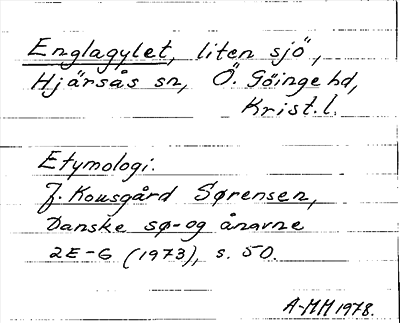 Englagylet, liten sjö,
Hjärsås sn, Ö. Göinge hd,
Krist. l.
Etymologi.
J. Kousgård Sørensen,
Danske sø- og ånavne
2E-G (1973), s. 50.
A-MM 1978.